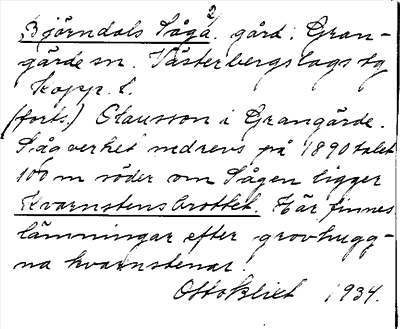 Björndals Såg 2. gård i Gran-
gärde sn. Västerbergslags tg
Kopp. l.
(forts.) Clausson i Grangärde.
Sågverket nedrevs på 1890 talet
100 m söder om Sågen ligger
Kvarnstensbrottet. Här finnes
lämningar efter grovhugg-
na kvarnstenar.
Otto Blixt 1934.